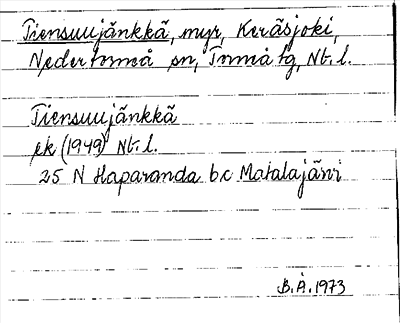 Tiensuujänkkä, myr, Keräsjoki,
Nedertorneå sn, Torneå tg, Nt. l.
Tiensuujänkkä
ek (1949) Nt. l.
25 N Haparanda bc Matalajärvi
B.Å. 1973